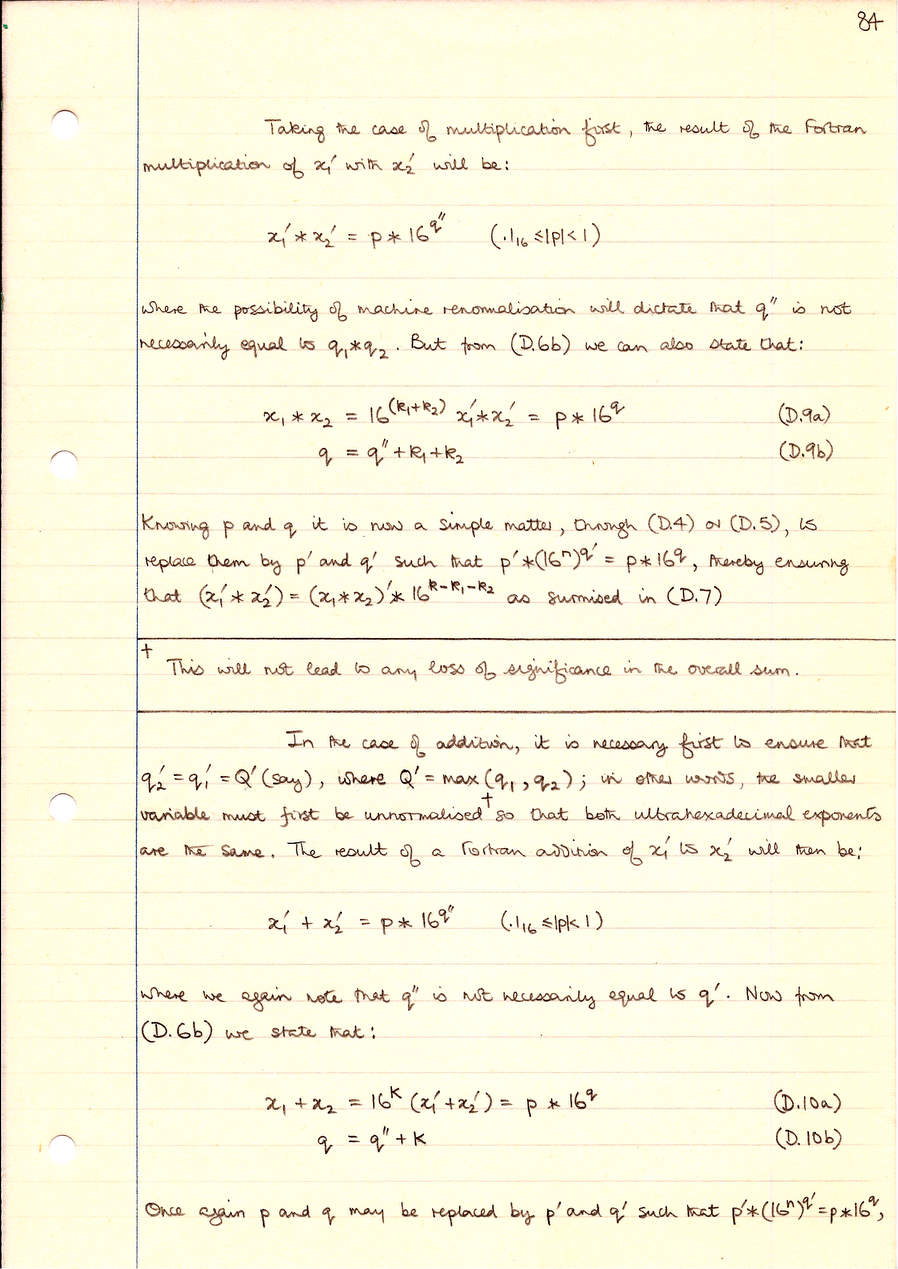 84
Taking the case of multiplication first, the result of the Fortran
multiplication of x₁′ with x₂′ will be:
x₁′ * x₂′ = p * 16^q″ (.1₁₆ ≤ |p| < 1)
where the possibility of machine renormalisation will dictate that q″ is not
necessarily equal to q₁*q₂. But from (D.6b) we can also state that:
x₁ * x₂ = 16^(k₁+k₂) x₁′*x₂′ = p * 16^q (D.9a)
q = q″ + k₁ + k₂ (D.9b)
Knowing p and q it is now a simple matter, through (D.4) or (D.5), to
replace them by p′ and q′ such that p′*(16ⁿ)^q′ = p*16^q, thereby ensuring
that (x₁′ * x₂′) = (x₁*x₂)′* 16^k-k₁-k₂ as surmised in (D.7)
† This will not lead to any loss of significance in the overall sum.
In the case of addition, it is necessary first to ensure that
q₂′ = q₁′ = Q′ (say), where Q′ = max (q₁, q₂); in other words, the smaller
variable must first be unnormalised† so that both ultrahexadecimal exponents
are the same. The result of a Fortran addition of x₁′ to x₂′ will then be:
x₁′ + x₂′ = p * 16^q″ (.1₁₆ ≤ |p| < 1)
where we again note that q″ is not necessarily equal to q′. Now from
(D.6b) we state that:
x₁ + x₂ = 16^K (x₁′ + x₂′) = p * 16^q (D.10a)
q = q″ + K (D.10b)
Once again p and q may be replaced by p′ and q′ such that p′*(16ⁿ)^q′ = p*16^q,